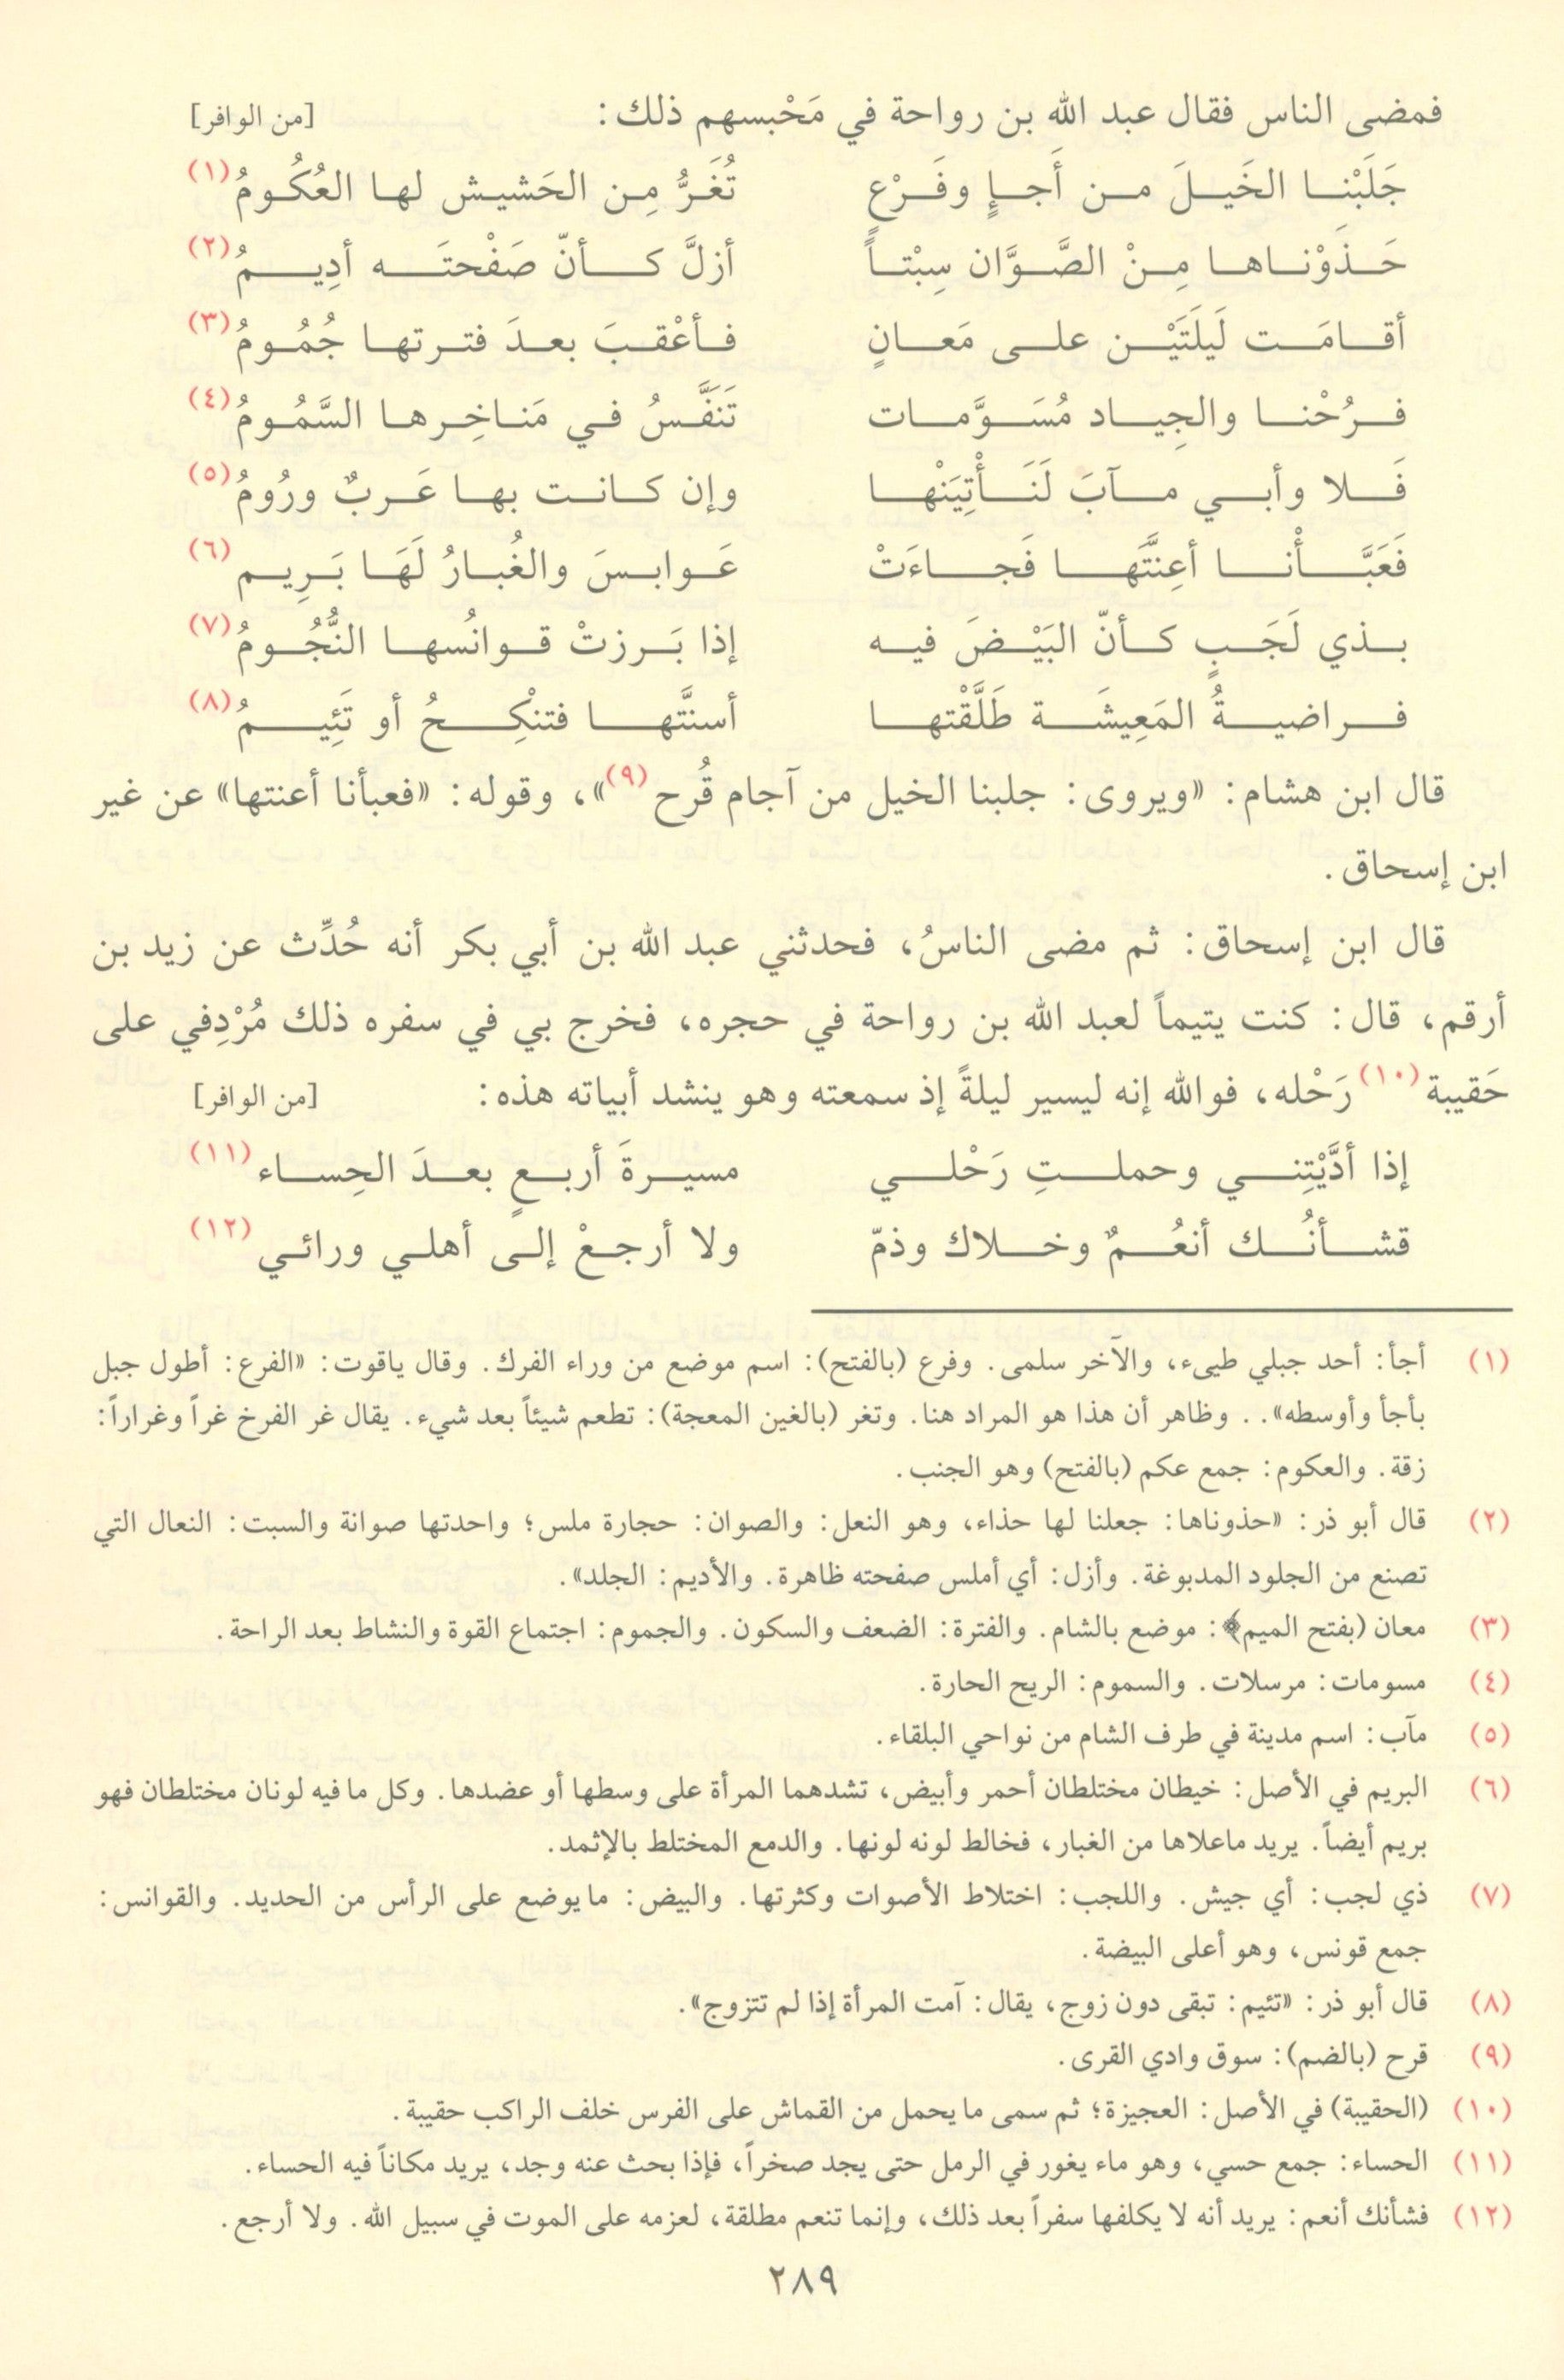 فمضى الناس فقال عبد الله بن رواحة في مَحْبسهم ذلك: [من الوافر]
جَلَبْنا الخَيلَ من أَجإٍ وفَرْعٍ تُغَرُّ مِن الحَشيش لها العُكُومُ(١)
حَذَوْناها مِنْ الصَّوَّان سِبْتاً أزلَّ كأنّ صَفْحتَه أدِيمُ(٢)
أقامَت لَيلَتَيْن على مَعانٍ فأعْقبَ بعدَ فترتها جُمُومُ(٣)
فرُحْنا والجِياد مُسَوَّمات تَنَفَّسُ في مَناخِرها السَّمُومُ(٤)
فَلا وأبي مآبَ لَنَأْتِيَنْها وإن كانت بها عَربٌ ورُومُ(٥)
فَعَبَّأْنا أعِنتَّهَا فَجاءَتْ عَوابسَ والغُبارُ لَهَا بَرِيم(٦)
بذي لَجَبٍ كأنّ البَيْضَ فيه إذا بَرزتْ قوانُسها النُّجُومُ(٧)
فراضيةُ المَعِيشَة طَلَّقْتها أسنتَّها فتنْكِحُ أو تَئِيمُ(٨)
قال ابن هشام: «ويروى: جلبنا الخيل من آجام قُرح(٩)»، وقوله: «فعبأنا أعنتها» عن غير
ابن إسحاق.
قال ابن إسحاق: ثم مضى الناسُ، فحدثني عبد الله بن أبي بكر أنه حُدِّث عن زيد بن
أرقم، قال: كنت يتيماً لعبد الله بن رواحة في حجره، فخرج بي في سفره ذلك مُرْدِفي على
حَقيبة(١٠) رَحْله، فوالله إنه ليسير ليلةً إذ سمعته وهو ينشد أبياته هذه: [من الوافر]
إذا أدَّيْتِني وحملتِ رَحْلي مسيرةَ أربعٍ بعدَ الحِساء(١١)
قشأنُك أنعُمٌ وخلاك وذمّ ولا أرجعْ إلى أهلي ورائي(١٢)
(١) أجأ: أحد جبلي طيىء، والآخر سلمى. وفرع (بالفتح): اسم موضع من وراء الفرك. وقال ياقوت: «الفرع: أطول جبل
بأجأ وأوسطه».. وظاهر أن هذا هو المراد هنا. وتغر (بالغين المعجة): تطعم شيئاً بعد شيء. يقال غر الفرخ غراً وغراراً:
زقة. والعكوم: جمع عكم (بالفتح) وهو الجنب.
(٢) قال أبو ذر: «حذوناها: جعلنا لها حذاء، وهو النعل: والصوان: حجارة ملس؛ واحدتها صوانة والسبت: النعال التي
تصنع من الجلود المدبوغة. وأزل: أي أملس صفحته ظاهرة. والأديم: الجلد».
(٣) معان (بفتح الميم﴾: موضع بالشام. والفترة: الضعف والسكون. والجموم: اجتماع القوة والنشاط بعد الراحة.
(٤) مسومات: مرسلات. والسموم: الريح الحارة.
(٥) مآب: اسم مدينة في طرف الشام من نواحي البلقاء.
(٦) البريم في الأصل: خيطان مختلطان أحمر وأبيض، تشدهما المرأة على وسطها أو عضدها. وكل ما فيه لونان مختلطان فهو
بريم أيضاً. يريد ماعلاها من الغبار، فخالط لونه لونها. والدمع المختلط بالإثمد.
(٧) ذي لجب: أي جيش. واللجب: اختلاط الأصوات وكثرتها. والبيض: ما يوضع على الرأس من الحديد. والقوانس:
جمع قونس، وهو أعلى البيضة.
(٨) قال أبو ذر: «تئيم: تبقى دون زوج، يقال: آمت المرأة إذا لم تتزوج».
(٩) قرح (بالضم): سوق وادي القرى.
(١٠) (الحقيبة) في الأصل: العجيزة؛ ثم سمى ما يحمل من القماش على الفرس خلف الراكب حقيبة.
(١١) الحساء: جمع حسي، وهو ماء يغور في الرمل حتى يجد صخراً، فإذا بحث عنه وجد، يريد مكاناً فيه الحساء.
(١٢) فشأنك أنعم: يريد أنه لا يكلفها سفراً بعد ذلك، وإنما تنعم مطلقة، لعزمه على الموت في سبيل الله. ولا أرجع.
٢٨٩